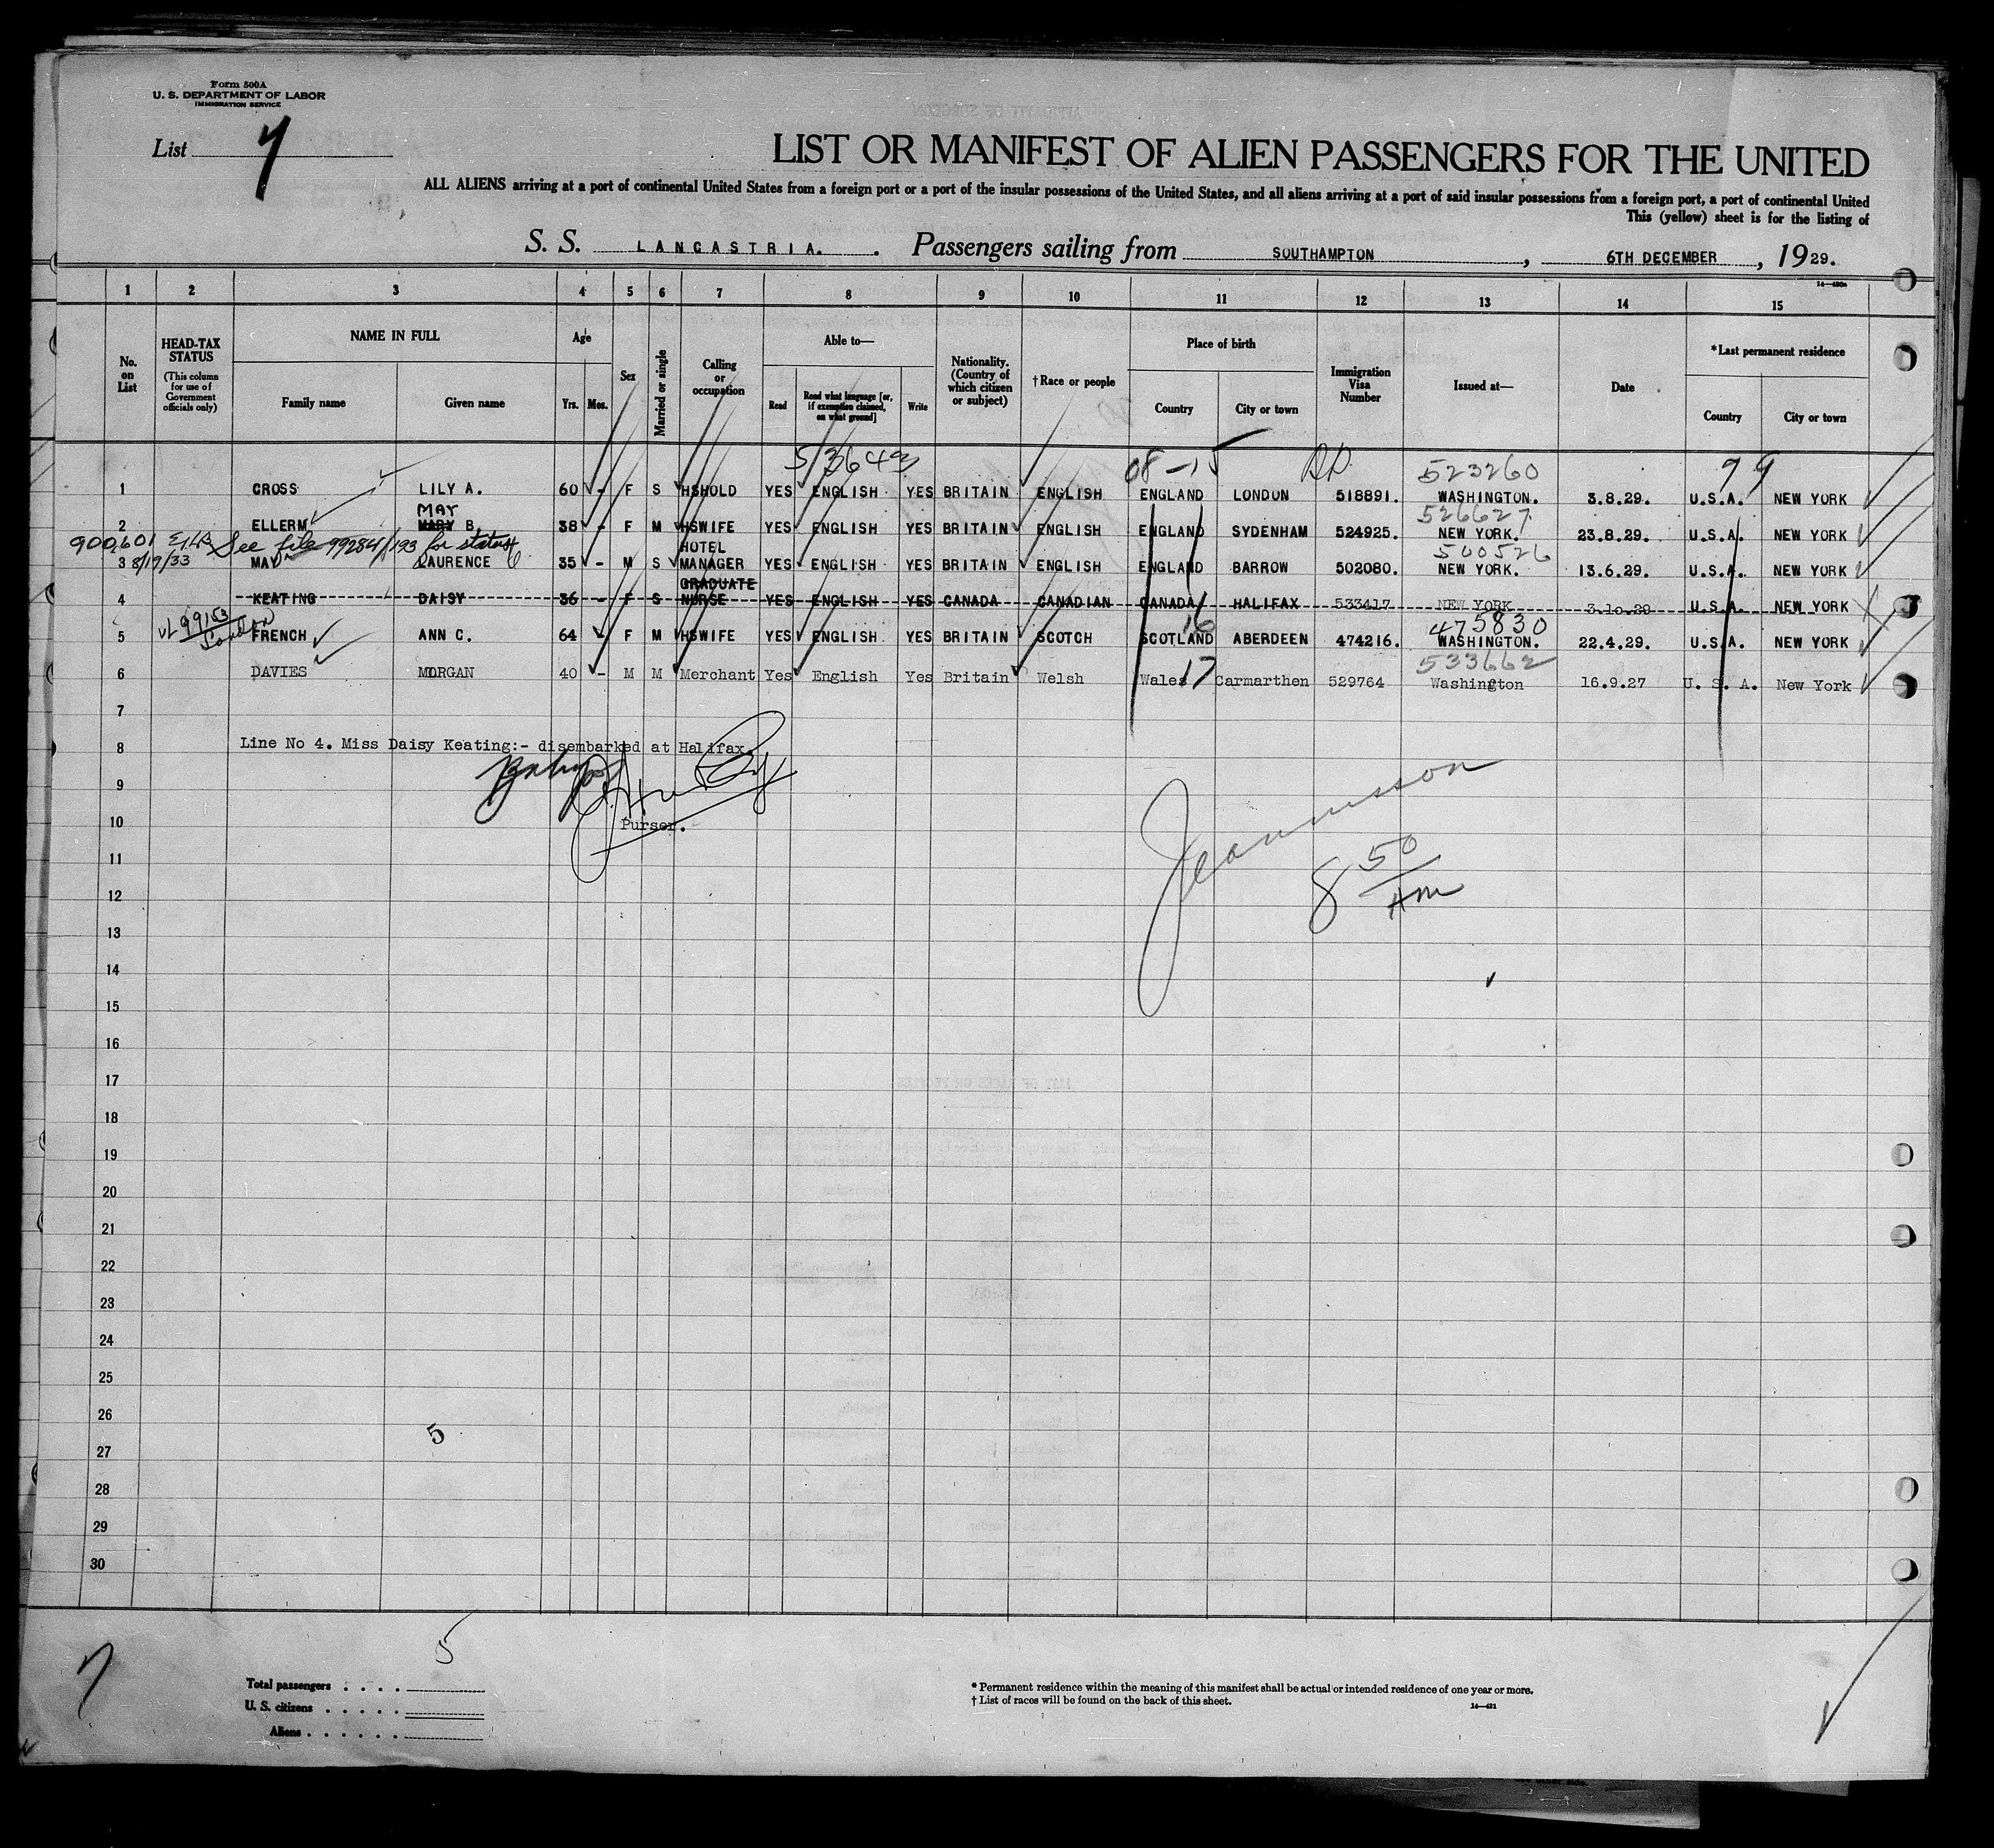 Form 500A
U. S. DEPARTMENT OF LABOR
IMMIGRATION SERVICE
List 7
LIST OR MANIFEST OF ALIEN PASSENGERS FOR THE UNITED
ALL ALIENS arriving at a port of continental United States from a foreign port or a port of the insular possessions of the United States, and all aliens arriving at a port of said insular possessions from a foreign port, a port of continental United
This (yellow) sheet is for the listing of
S. S. LANCASTRIA. Passengers sailing from SOUTHAMPTON, 6TH DECEMBER, 1929.
1 2 3 4 5 6 7 8 9 10 11 12 13 14 15
No. on List
HEAD-TAX STATUS (This column for use of Government officials only)
NAME IN FULL
Family name Given name
Age
Yrs. Mos.
Sex
Married or single
Calling or occupation
Able to—
Read Read what language [or, if exemption claimed, on what ground] Write
Nationality. (Country of which citizen or subject)
†Race or people
Place of birth
Country City or town
Immigration Visa Number
Issued at—
Date
*Last permanent residence
Country City or town
53643 08-15 523260 99
1 CROSS LILY A. 60 - F S HSHOLD YES ENGLISH YES BRITAIN ENGLISH ENGLAND LONDON 518891. WASHINGTON. 3.8.29. U.S.A. NEW YORK
MAY 526627
2 ELLERM MARY B. 38 - F M HSWIFE YES ENGLISH YES BRITAIN ENGLISH ENGLAND SYDENHAM 524925. NEW YORK. 23.8.29. U.S.A. NEW YORK
900,601 See file 99284/193 for status HOTEL 500526
3 8/19/33 MAY LAURENCE 35 - M S MANAGER YES ENGLISH YES BRITAIN ENGLISH ENGLAND BARROW 502080. NEW YORK. 13.6.29. U.S.A. NEW YORK
GRADUATE
4 KEATING DAISY 36 - F S NURSE YES ENGLISH YES CANADA CANADIAN CANADA HALIFAX 533417 NEW YORK 3.10.29 U.S.A. NEW YORK
99153 London 16 475830
5 FRENCH ANN C. 64 F M HSWIFE YES ENGLISH YES BRITAIN SCOTCH SCOTLAND ABERDEEN 474216. WASHINGTON. 22.4.29. U.S.A. NEW YORK
533662
6 DAVIES MORGAN 40 - M M Merchant Yes English Yes Britain Welsh Wales 17 Carmarthen 529764 Washington 16.9.27 U. S. A. New York
7
8 Line No 4. Miss Daisy Keating:- disembarked at Halifax.
9
10 Purser.
8 50 AM
11
12
13
14
15
16
17
18
19
20
21
22
23
24
25
26
5
27
28
29
30
7
5
Total passengers
U. S. citizens
Aliens
* Permanent residence within the meaning of this manifest shall be actual or intended residence of one year or more.
† List of races will be found on the back of this sheet.
14—421